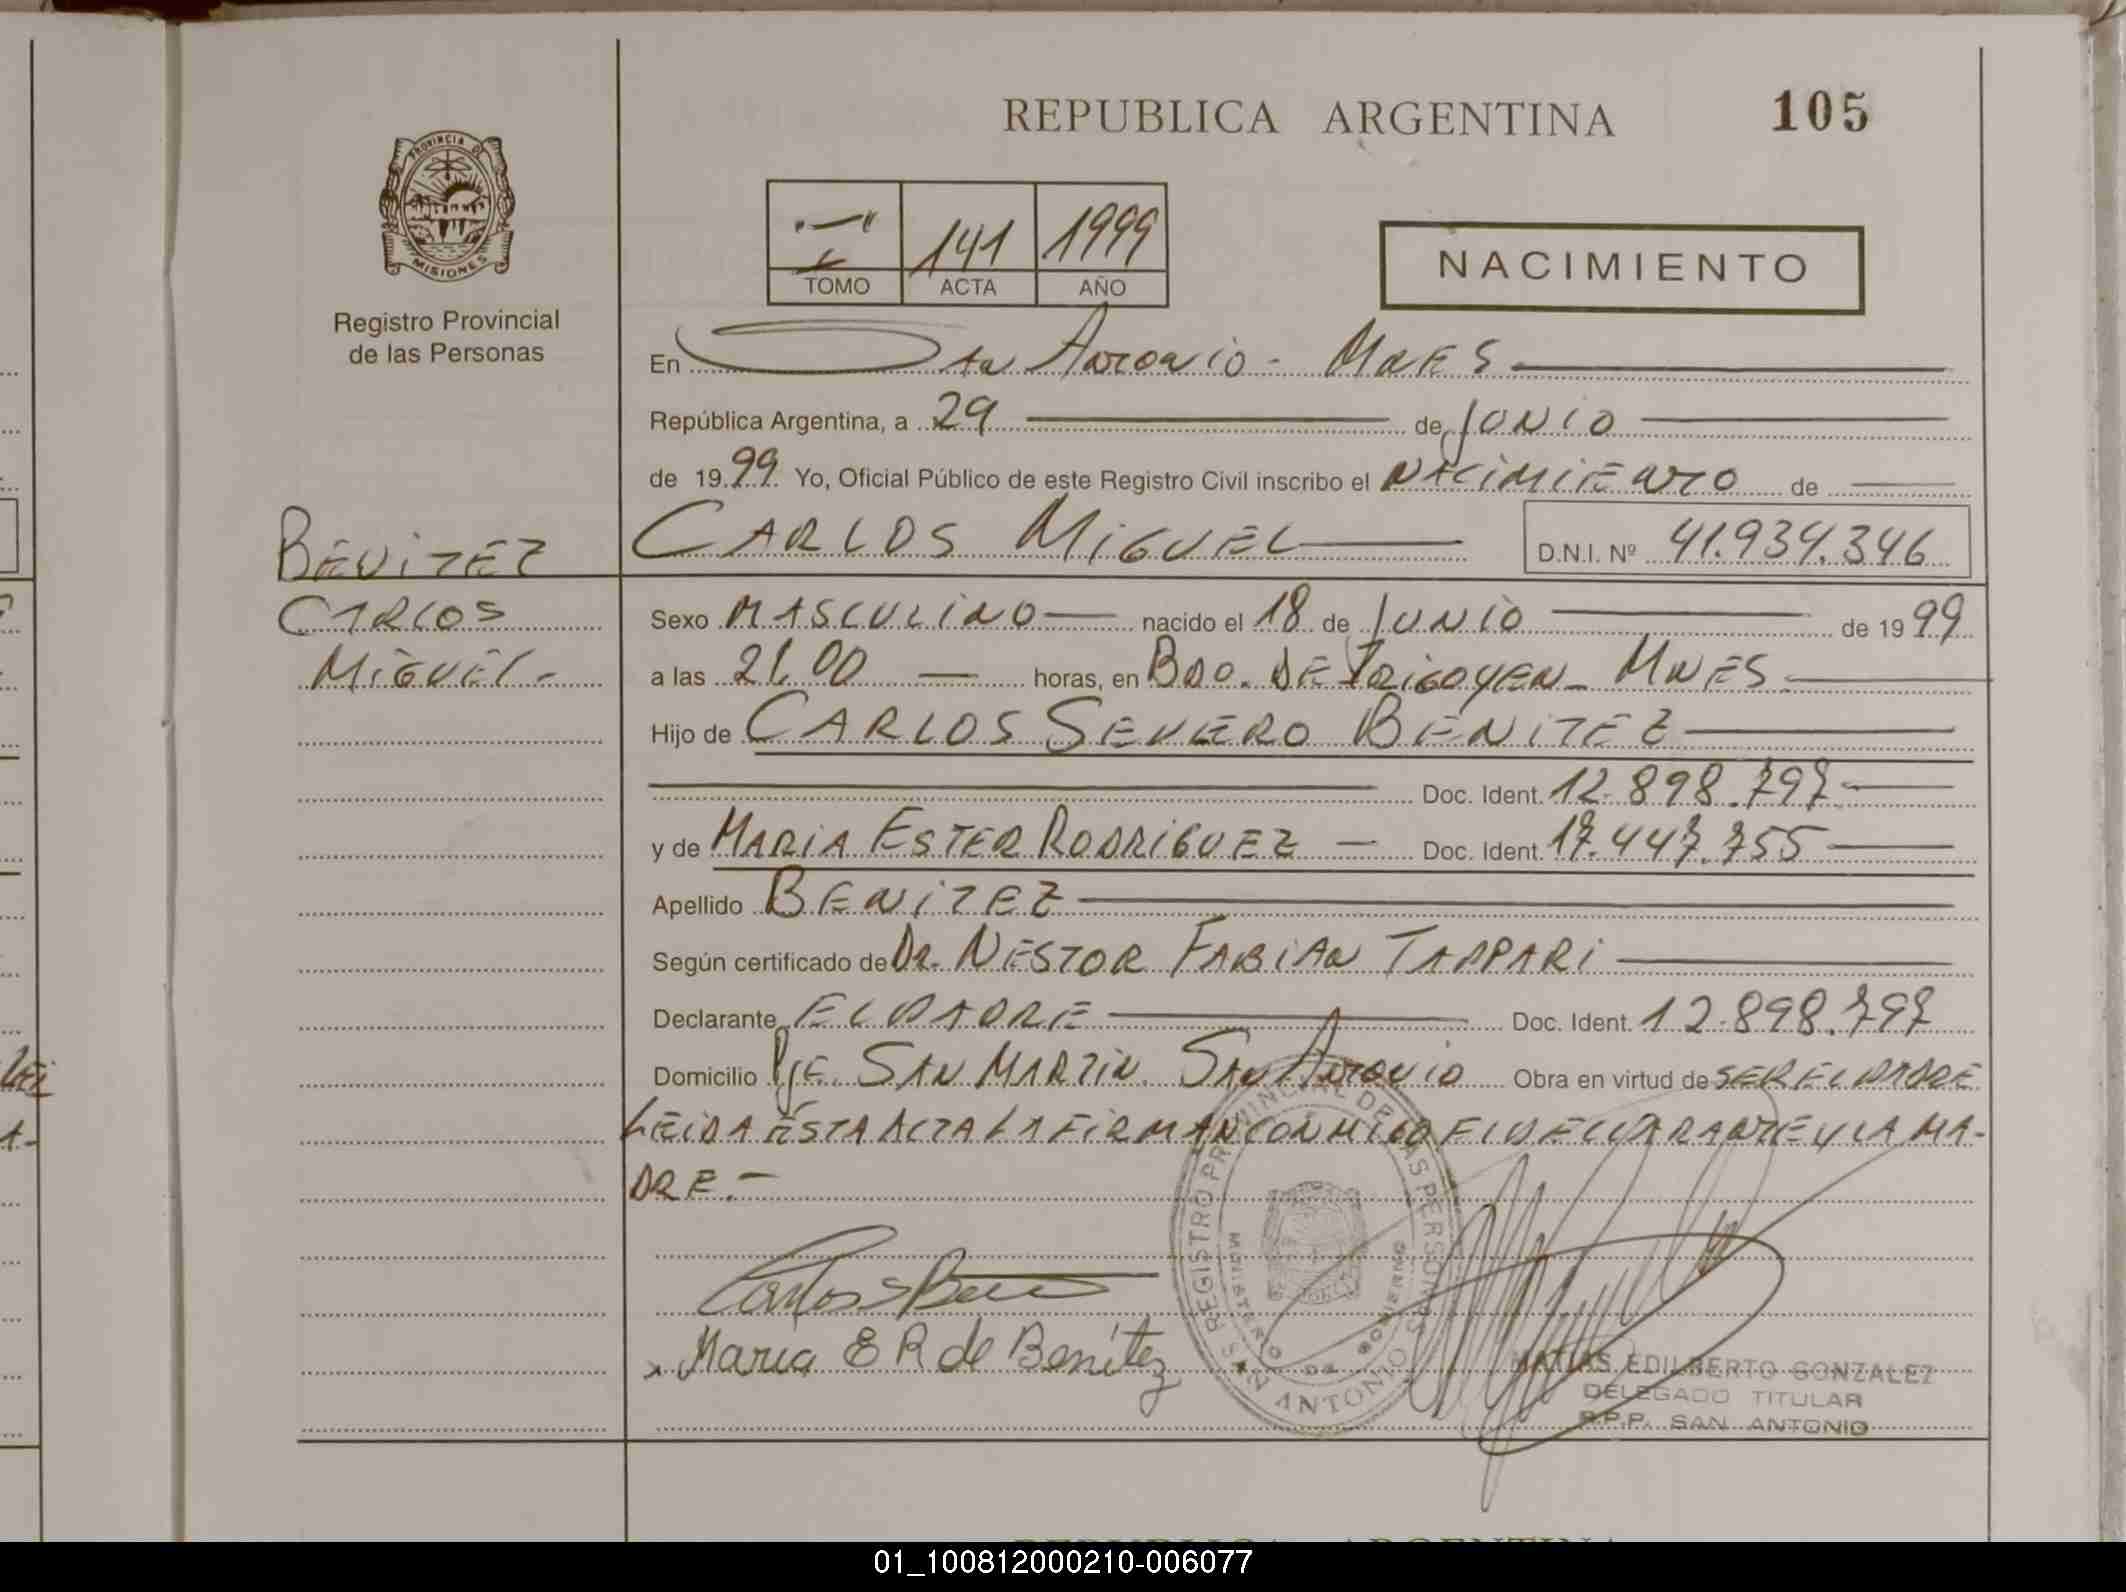 REPUBLICA ARGENTINA 105
PROVINCIA DE
MISIONES
Registro Provincial
de las Personas
141 1999
TOMO ACTA AÑO
NACIMIENTO
En San Antonio - Mnes
República Argentina, a 29 de Junio
de 1999 Yo, Oficial Público de este Registro Civil inscribo el NACIMIENTO de
BENITEZ
CARLOS
MIGUEL.-
CARLOS MIGUEL D.N.I. Nº 41.934.346
Sexo MASCULINO nacido el 18 de JUNIO de 1999
a las 21,00 horas, en BDO. DE IRIGOYEN - MNES.
Hijo de CARLOS SEVERO BENITEZ
Doc. Ident. 12.898.797
y de MARIA ESTER RODRIGUEZ Doc. Ident. 17.447.755
Apellido BENITEZ
Según certificado de DR. NESTOR FABIAN TAPPARI
Declarante EL PADRE Doc. Ident. 12.898.797
Domicilio Pje. SAN MARTIN. SAN ANTONIO Obra en virtud de SER EL PADRE
LEIDA ÉSTA ACTA LA FIRMAN CONMIGO EL DECLARANTE Y LA MA-
DRE.-
Carlos S
Maria E R de Benítez
REGISTRO PROVINCIAL DE LAS PERSONAS
MINISTERIO DE GOBIERNO
SAN ANTONIO
MATIAS EDILBERTO GONZALEZ
DELEGADO TITULAR
R.P.P. SAN ANTONIO
REPUBLICA ARGENTINA
01_100812000210-006077